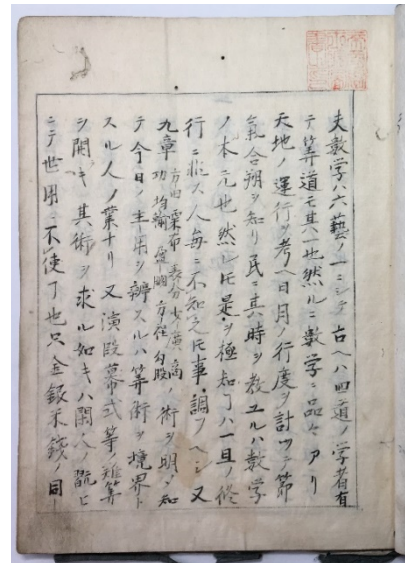 夫数学ハ六藝ノ一ニシテ古ヘハ四道ノ学者有
テ筭道モ其一也然ルニ数学ニ品々アリ
天地ノ運行ヲ考ヘ日月ノ行度ヲ計ツテ節
氣合朔ヲ知リ民ニ其時ヲ教エルハ数学
ノ本元也然レ𪜈是ヲ極知ヿハ一旦ノ修
行ニ非ス人毎ニ不知之𪜈事調フヘシ又
九章 方田 粟布 衰分 少廣 商功 均輸 盈朒 方程 勾股 ノ術ヲ明ニ知
テ今日ノ主用ヲ辨スルハ筭術ヲ境界ト
スル人ノ業ナリ又演段冪式等ノ雑筭
ヲ開キ其術ヲ求ル如キハ閑人ノ翫ヒ
ニテ世用ニ不使ヿ也只金銀米銭ノ同